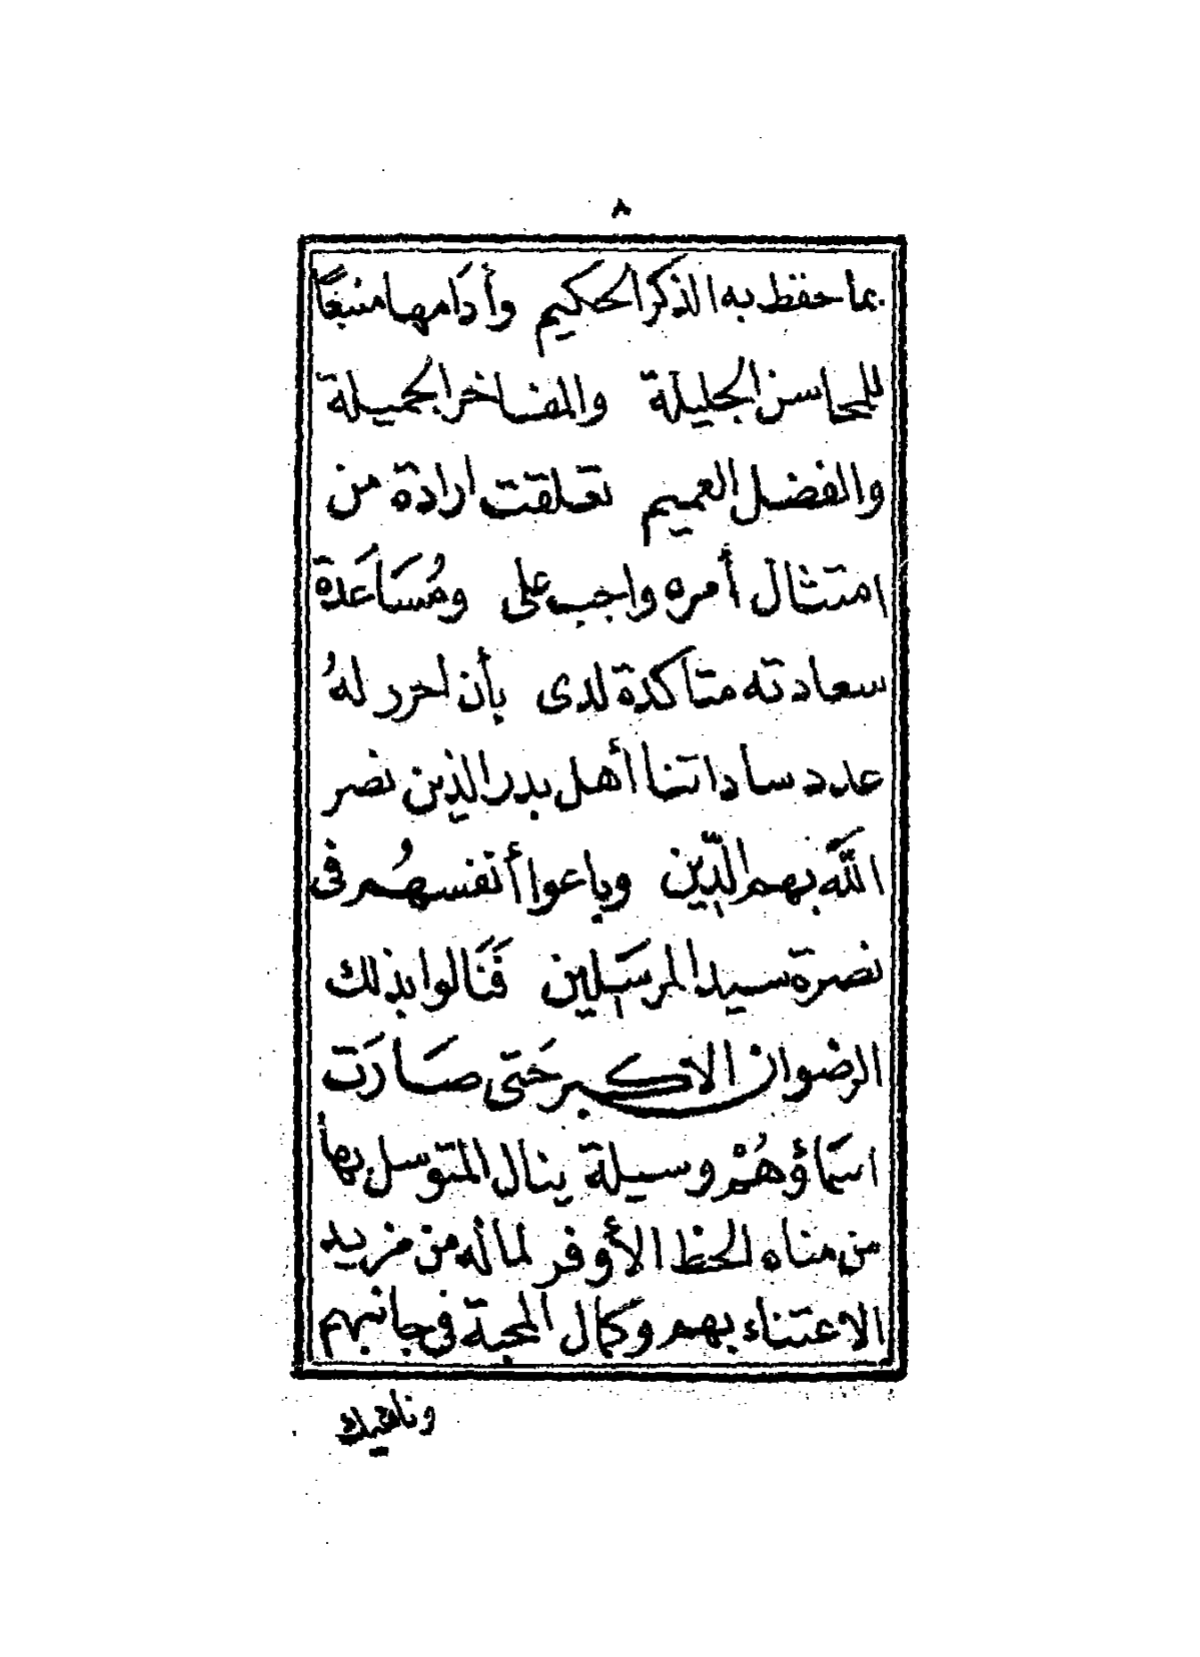 ٨
بما حفظ به الذكر الحكيم وأدامها منبعًا
للمحاسن الجليلة والمفاخر الجميلة
والفضل العميم تعلقت ارادة من
امتثال أمره واجب على ومُسَاعَدة
سعادته متاكدة لدى بأن احرر لهُ
عدد ساداتنا أهل بدر الذين نصر
اللَّه بهم الدِّين وباعوا أنفسهُم فى
نصرة سيد المرسَلين فَنَالوا بذلك
الرضوان الاكبر حَتى صَارَت
اسمَاؤهُمْ وسيلة ينال المتوسل بها
من مناه الحظ الأوفر لماله من مزيد
الاعتناء بهم وكمال المحبة فى جانبهم
وناهيك